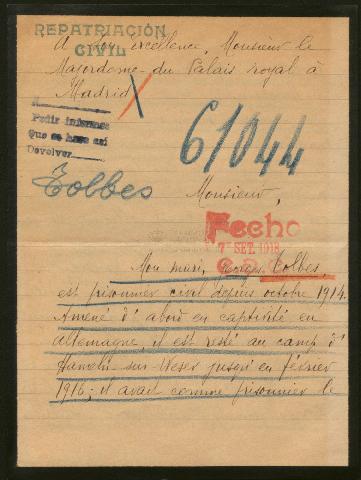 REPATRIACIÓN
CIVIL
A son excellence, Monsieur le
Majordome du Palais royal à
Madrid
Pedir informes
Que se hace así
Devolver
61044
Tolbes
Monsieur,
Fecho
7 SET. 1918
Mon mari, Georges Tolbes
est prisonnier civil depuis octobre 1914.
Amené d'abord en captivité en
Allemagne, il est resté au camp d'
Hameln-sur-Weser jusqu'en février
1916; il avait comme prisonnier le